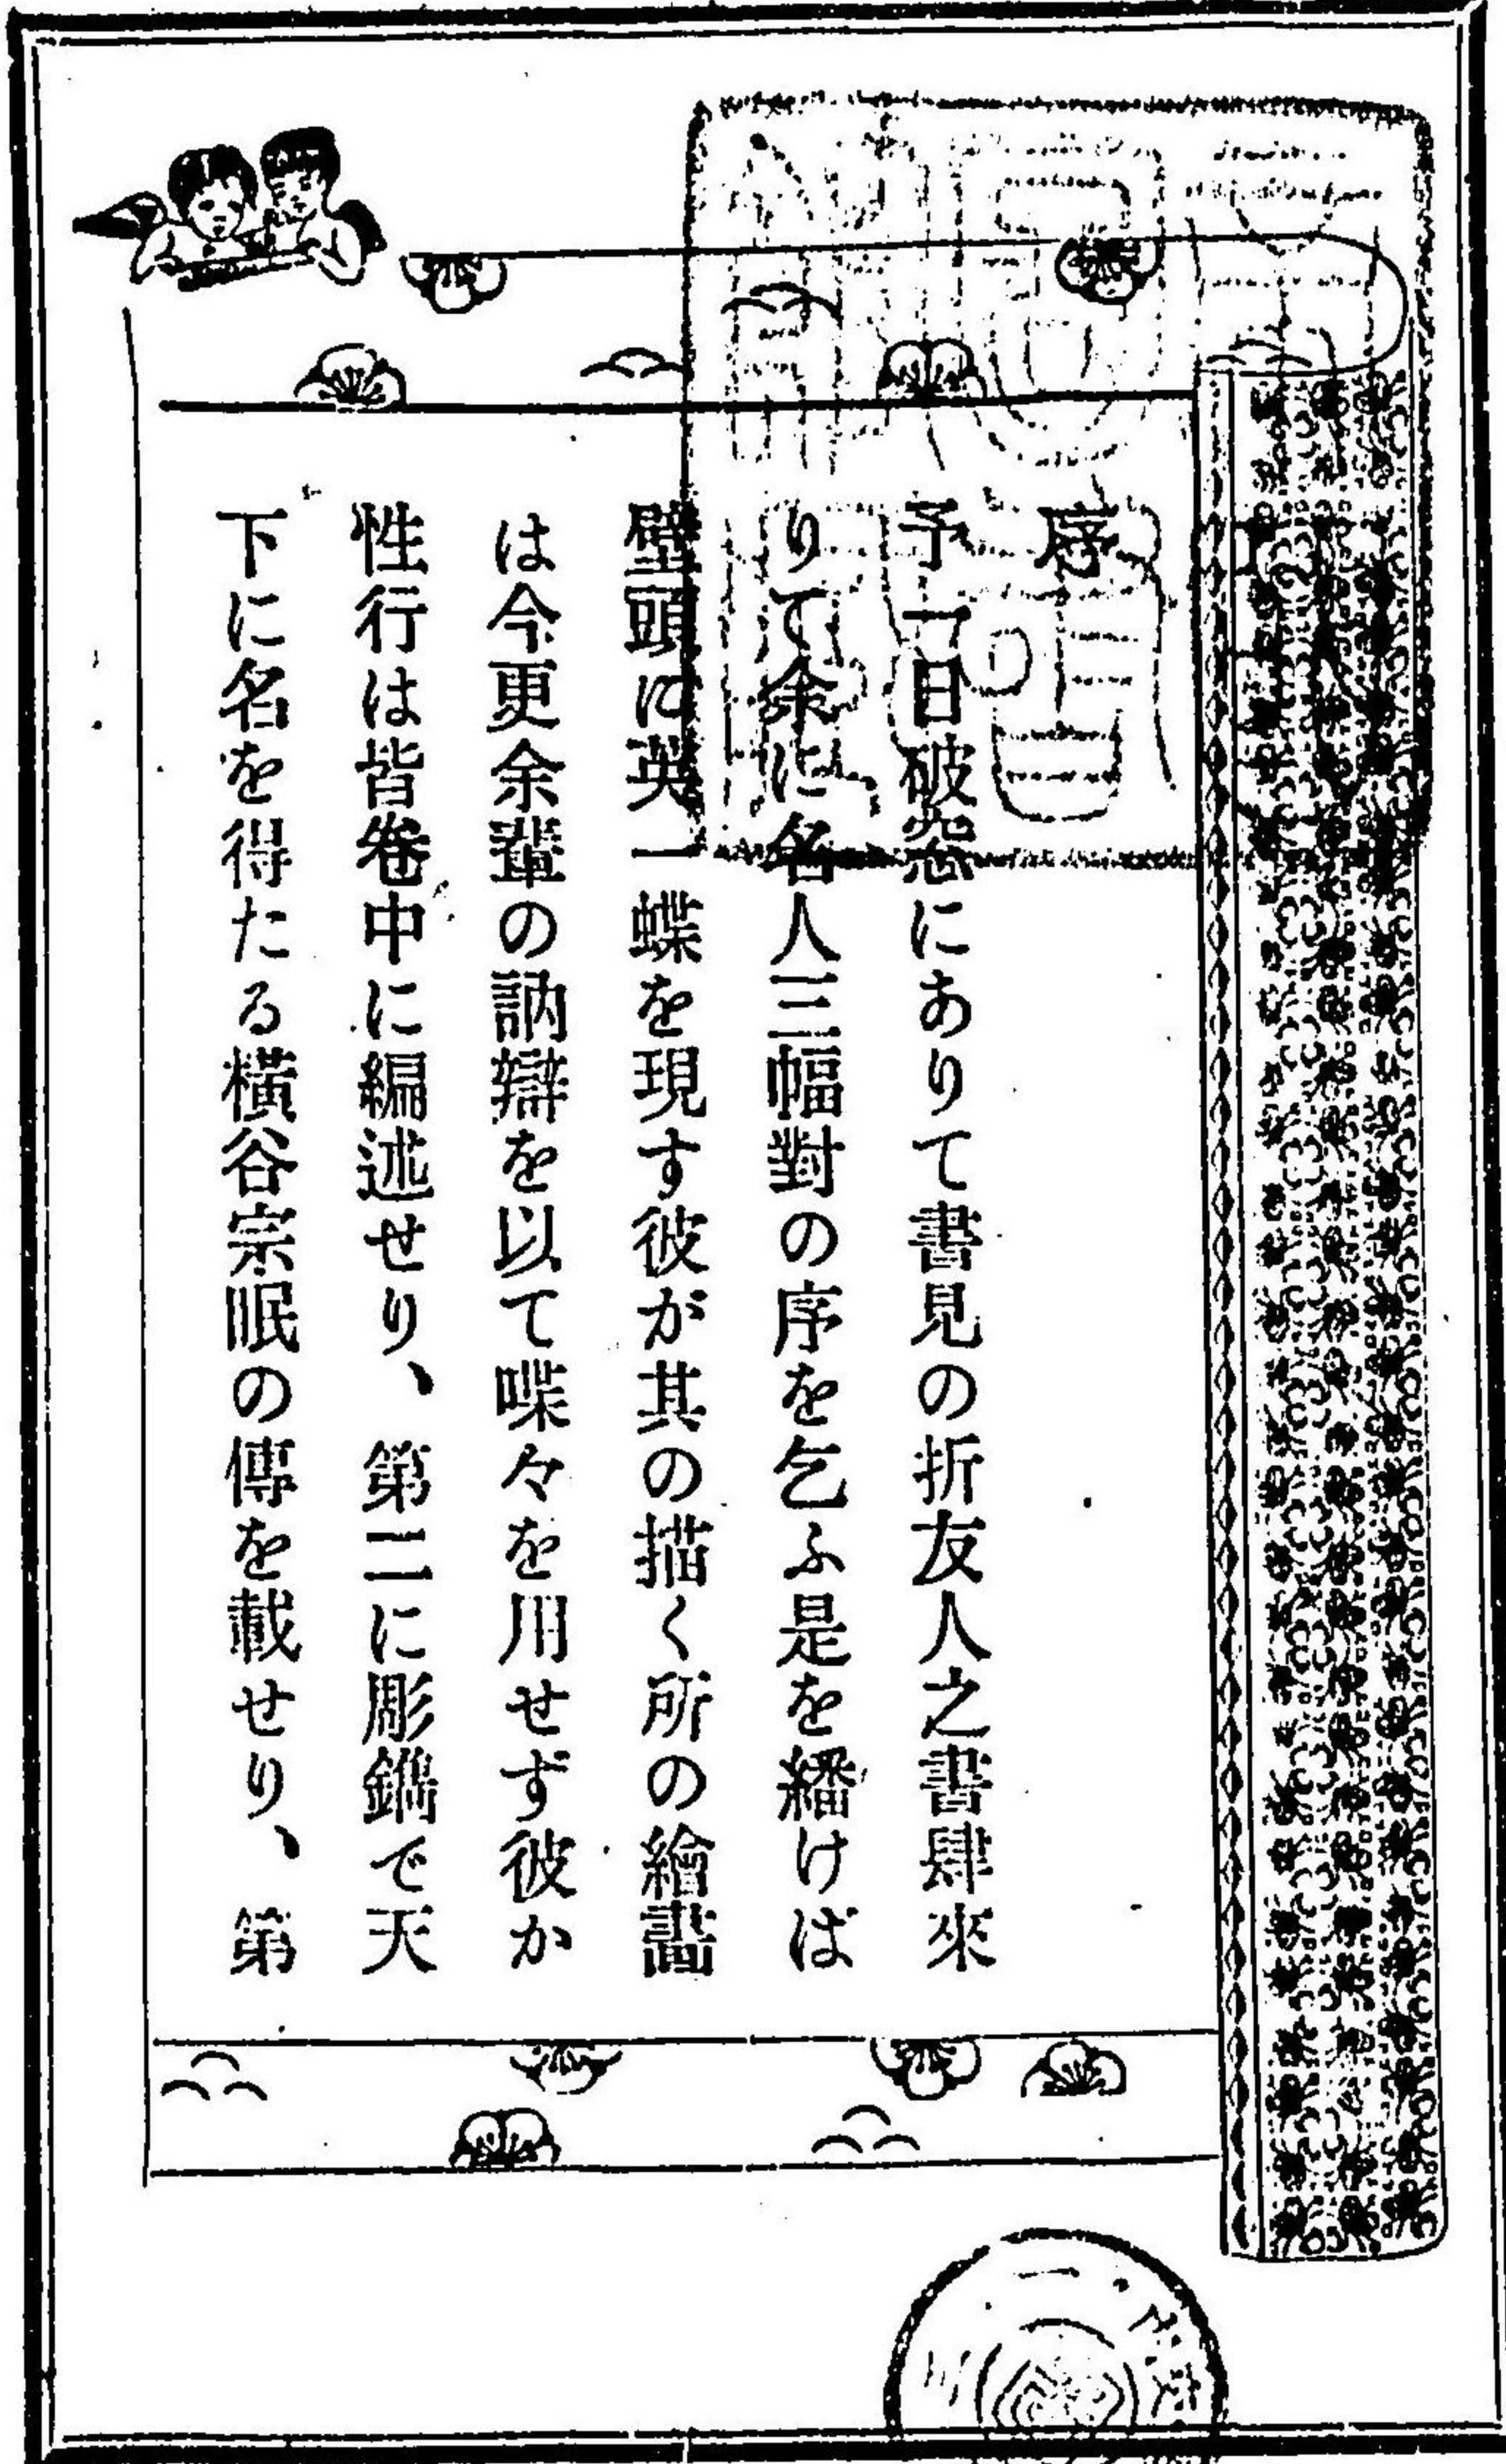 序
予一日破窓にありて書見の折友人之書肆來
りて余に名人三幅對の序を乞ふ是を繙けば
壁頭に英一蝶を現す彼が其の描く所の繪畵
は今更余輩の訥辯を以て喋々を用せず彼か
性行は皆卷中に編述せり、第二に彫鐫で天
下に名を得たる横谷宗眠の傳を載せり、第